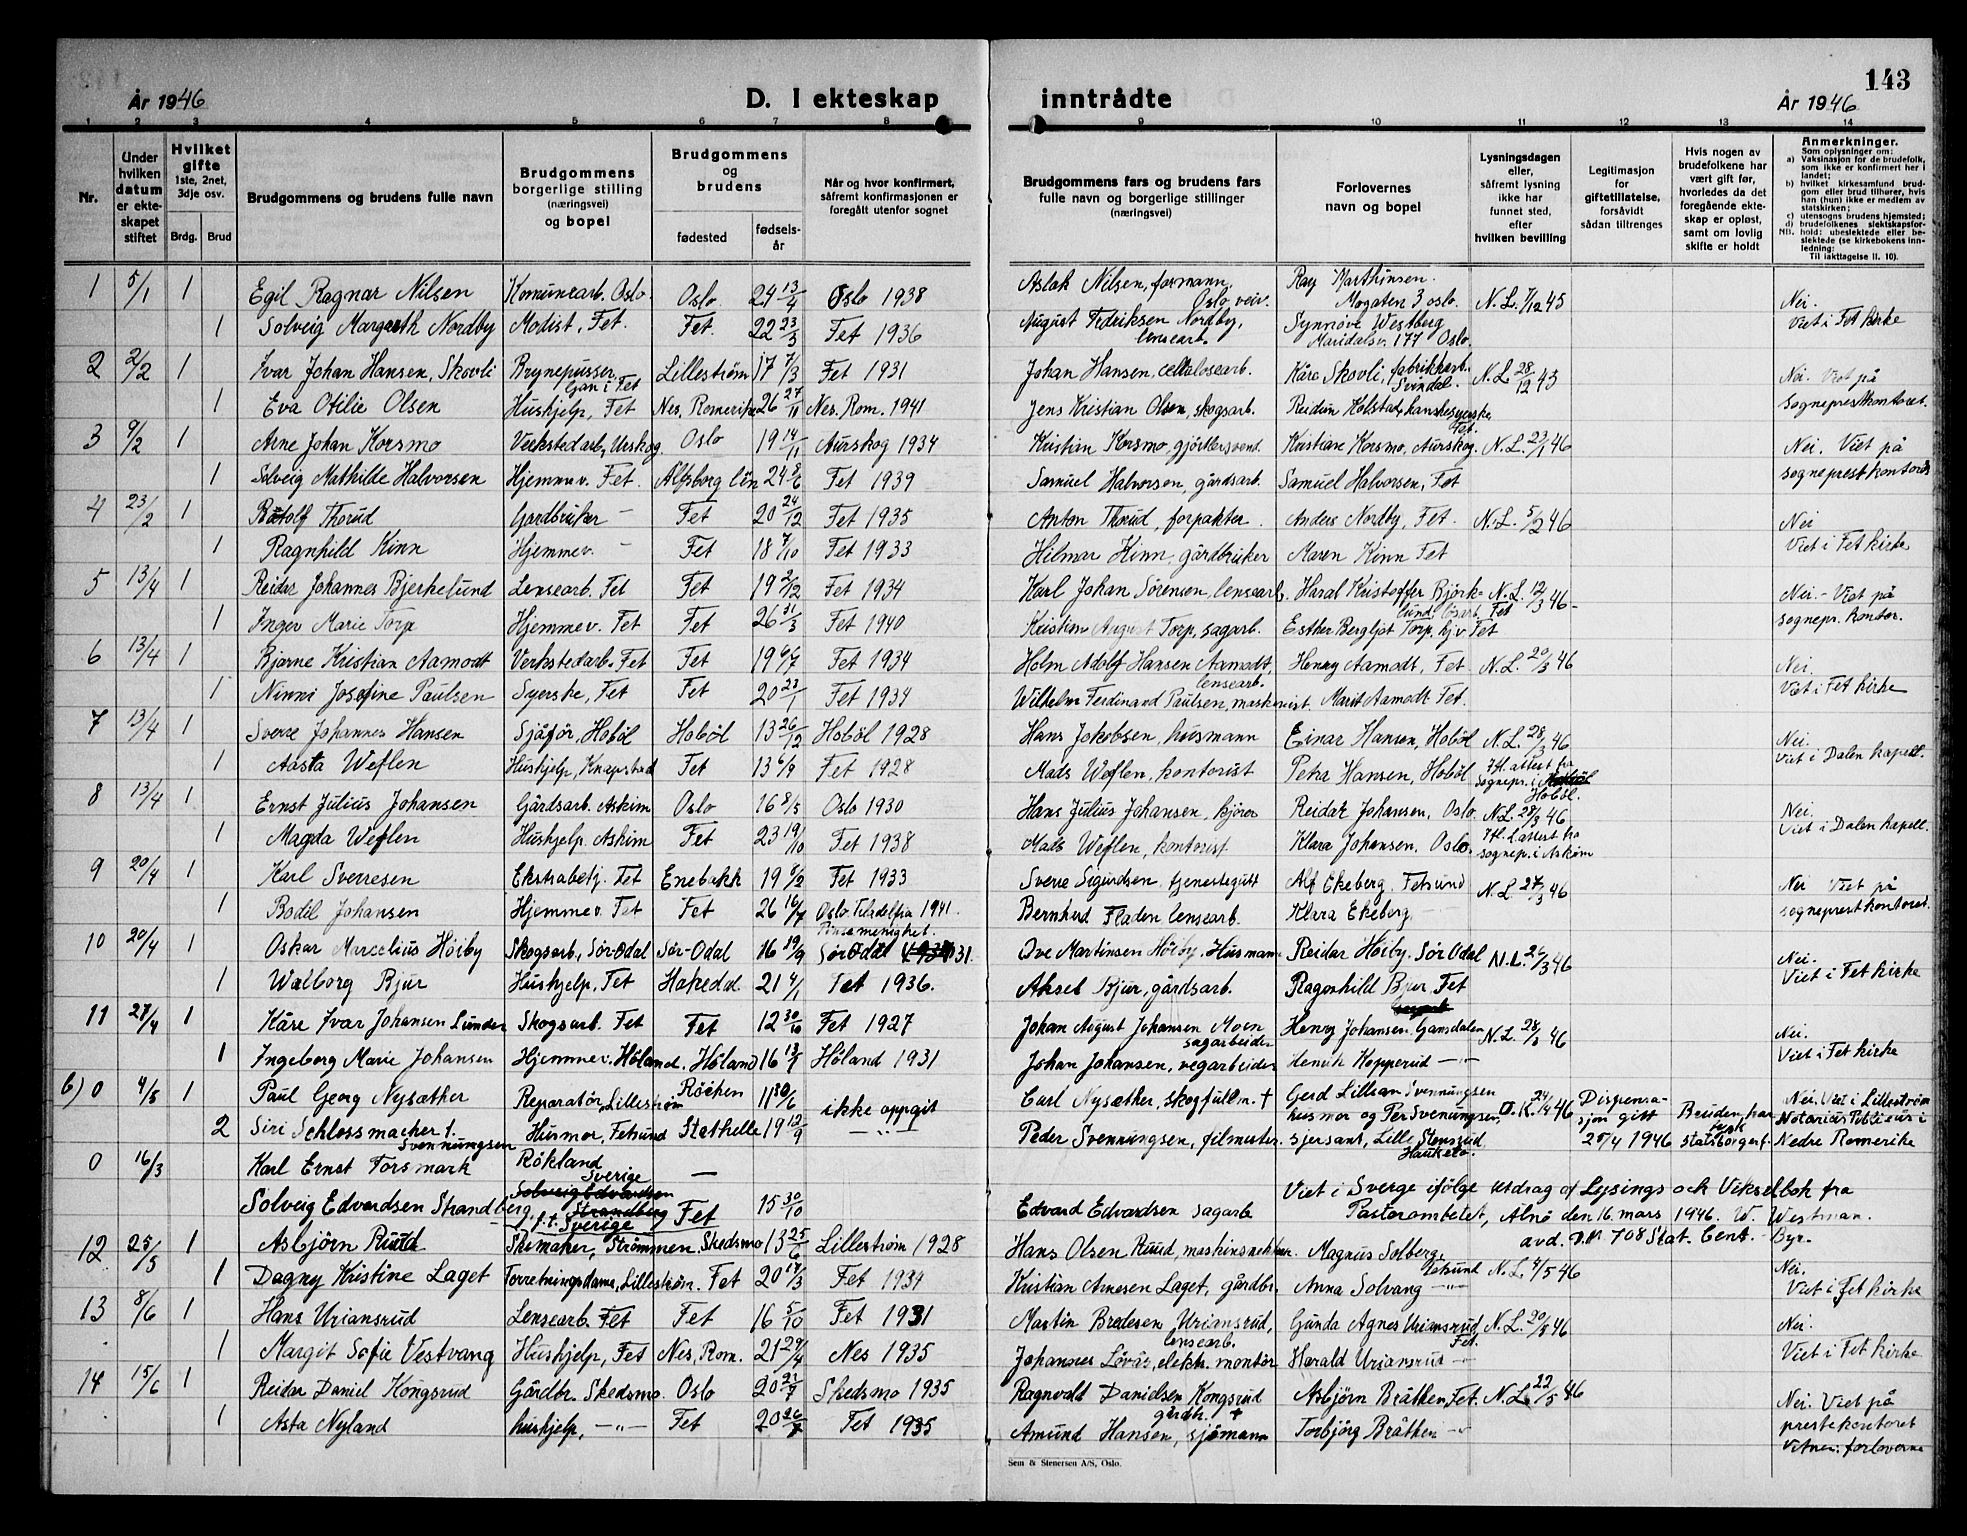 År 1946 D. I ekteskap inntrådte År 1946 143
1 2 3 4 5 6 7 8 9 10 11 12 13 14
Nr.
Under hvilken datum er ekteskapet stiftet
Hvilket gifte 1ste, 2net, 3dje osv. Brdg. Brud
Brudgommens og brudens fulle navn
Brudgommens borgerlige stilling (næringsvei) og bopel
Brudgommens og brudens fødested fødselsår
Når og hvor konfirmert, såfremt konfirmasjonen er foregått utenfor sognet
Brudgommens fars og brudens fars fulle navn og borgerlige stillinger (næringsvei)
Forlovernes navn og bopel
Lysningsdagen eller, såfremt lysning ikke har funnet sted, efter hvilken bevilling
Legitimasjon for giftetillatelse, forsåvidt sådan tiltrenges
Hvis nogen av brudefolkene har vært gift før, hvorledes da det foregående ekteskap er opløst, samt om lovlig skifte er holdt
Anmerkninger.
Som oplysninger om:
a) Vaksinasjon for de brudefolk, som ikke er konfirmert her i landet;
b) hvilket kirkesamfund brudgom eller brud tilhører, hvis han (hun) ikke er medlem av statskirken;
c) utensogns brudens hjemsted;
d) brudefolkenes slektskapsforhold: ubeslektede eller beslektede (se kirkebokens innledning;
NB. Til iakttagelse II. 10).
1 5/1 1 Egil Ragnar Nilsen Komunearb. Oslo. Oslo 24 13/4 Oslo 1938 Aslak Nilsen, formann, Oslo veiv. Roy Marthinsen. Mogaten 3 oslo. N.L. 7/12 45 Nei.
1 Solveig Margreth Nordby Modist, Fet. Fet. 22 23/3 Fet 1936 August Fedriksen Nordby, lensearb. Synnøve Westberg Maridalsv 177 Oslo. Viet i Fet kirke
2 2/2 1 Ivar Johan Hansen, Skovli Brynepusser, Gan i Fet Lillestrøm 17 7/3 Fet 1931 Johan Hansen, cellulosearb. Kåre Skovli, fabrikkarb. Svindal. N.L. 28/12 43 Nei. Viet på
1 Eva Otilie Olsen Huskjelp, Fet Nes, Romerike 26 27/11 Nes. Rom. 1941 Jens Kristian Olsen, skogsarb. Reidun Holstad, hanskesyerske Fet. sogneprestkontoret.
3 9/2 1 Arne Johan Korsmo Verkstedarb, Urskog. Oslo 19 14/11 Aurskog 1934 Kristian Korsmo, gjørtlersvend. Kristiane Korsmo, Aurskog. N.L. 23/1 46 Nei. Viet på
1 Solveig Mathilde Halvorsen Hjemmev. Fet. Alfsborg len 24 8/6 Fet 1939 Samuel Halvorsen, gårdsarb. Samuel Halvorsen, Fet sogneprestkontoret
4 23/2 1 Botolf Thorud Gardbruker – Fet 20 24/12 Fet 1935 Anton Thorud, forpakter. Anders Nordby, Fet. N.L. 5/2 46 Nei
1 Ragnhild Kinn Hjemmev. – Fet 18 7/10 Fet 1933 Hilmar Kinn, gårdbruker Maren Kinn Fet Viet i Fet kirke
5 13/4 1 Reidar Johannes Bjerkelund Lensearb. Fet Fet 19 2/12 Fet 1934 Karl Johan Sørensen, lensearb. Haral Kristoffer Bjørkelund løsarb. Fet N.L. 12/3 46 – Nei. – Viet på
1 Inger Marie Torp Hjemmev. Fet Fet 26 31/3 Fet 1940 Kristian August Torp, sagarb. Esther Bergljot Torp, hj.v Fet sognepr. kontor.
6 13/4 1 Bjarne Kristian Aamodt Verkstedarb. Fet Fet 19 6/7 Fet 1934 Holm Adolf Hansen Aamodt, lensearb. Henry Aamodt, Fet N.L. 20/3 46 Nei
1 Ninni Josefine Paulsen Syerske, Fet Fet 20 23/1 Fet 1934 Wilhelm Ferdinand Paulsen, maskinist. Marit Aamodt Fet. Viet i Fet kirke
7 13/4 1 Sverre Johannes Hansen Sjåfør, Hobøl Hobøl 13 26/12 Hobøl 1928 Hans Jakobsen, husmann Einar Hansen, Hobøl N.L. 28/3 46 Nei.
1 Aasta Weflen Huskjelp, Knapstad Fet 13 6/9 Fet 1928 Mads Weflen, kontorist Petra Hansen, Hobøl Ifl. attest fra sognepr. i Hobøl. Viet i Dalen kapell.
8 13/4 1 Ernst Julius Johansen Gårdsarb. Askim Oslo 16 8/5 Oslo 1930 Hans Julius Johansen, kjører Reidar Johansen, Oslo N.L. 28/3 46 Nei.
1 Magda Weflen Huskjelp, Askim Fet 23 19/10 Fet 1938 Mads Weflen, kontorist Klara Johansen, Oslo. Ifl. attest fra sognepr. i Askim Viet i Dalen kapell.
9 20/4 1 Karl Sverresen Ekstrabetj. Fet Enebakk 19 6/2 Fet 1933 Sverre Sigurdsen, tjenestegutt Alf Ekeberg, Fetsund N.L. 27/3 46 Nei Viet på
1 Bodil Johansen Hjemmev. Fet Fet 26 16/7 Oslo Filadelfia 1941. Pinsemenighet. Bernhard Fladen lensearb. Klara Ekeberg sogneprestkontoret.
10 20/4 1 Oskar Marcelius Høiby Skogsarb, Sør-Odal Sør-Odal 16 19/9 Sør Odal 1931. Ove Martinsen Høiby, Husmann Reidar Høiby. Sør Odal N.L. 26/3 46 Nei.
1 Walborg Bjur Huskjelp, Fet Hakedal 21 4/1 Fet 1936. Aksel Bjur, gårdsarb. Ragnhild Bjur, Fet Viet i Fet kirke
11 27/4 1 Kåre Ivar Johansen Lunder Skogsarb. Fet Fet 12 30/10 Fet 1927 Johan August Johansen Moen sagarbeider Henry Johansen. Gansdalen N.L. 28/3 46 Nei.
1 Ingeborg Marie Johansen Hjemmev. Høland. Høland 16 13/5 Høland 1931 Johan Johansen, vegarbeider Henrik Kopperud –"– Viet i Fet kirke
6) 0 4/5 1 Paul Georg Nysæther Reparatør, Lillestrøm Røken 11 30/6 ikke oppgit Carl Nysæther, skogfullm. + Gerd Lillian Svenningsen husmor og Per Svenningsen, 24/4 46 Dispensasjon gitt 25/4 1946 Bruden har tysk statsborgersk. Nei. Viet i Lillestrøm Notarius Publicus i
2 Siri Schlossmacher f. Svenningsen Husmor, Fetsund Stathelle 19 12/9 –"– Peder Svenningsen, filmester. sjersant, Lille Stensrud Hauketo. Nedre Romerike
0 16/3 Karl Ernst Forsmark Rökland Sverige –
Solveig Edvardsen Strandberg, p.t. Sverige Fet 15 30/10 Edvard Edvardsen sagarb Viet i Sverge ifølge utdrag af Lysings och Vikselbok fra
Pastorambetet, Alnö den 16. mars 1946. W. Westman.
avd. D.N 708 Stat. Cent. – Byr.
12 25/5 1 Asbjørn Ruud Skomaker, Strømmen. Skedsmo 13 25/6 Lillestrøm 1928 Hans Olsen Ruud, maskinsnekker. Magnus Solberg, Fetsund N.L. 4/5 46 Nei.
1 Dagny Kristine Laget Forretningsdame, Lillestrøm. Fet 20 14/3 Fet 1934 Kristian Arnesen Laget, gårdbr. Anna Solvang –"– Viet i Fet kirke
13 8/6 1 Hans Uriansrud Lensearb. Fet Fet 16 5/10 Fet 1931 Martin Bredesen Uriansrud, lensearb. Gunda Agnes Uriansrud, Fet. N.L. 20/5 46 Nei.
1 Margit Sofie Vestvang Huskjelp, Fet Nes, Rom. 21 29/4 Nes 1935 Johannes Løvås, elektr. montør Harald Uriansrud –"– Viet i Fet kirke
14 15/6 1 Reidar Daniel Kongsrud Gårdbr. Skedsmo Oslo 20 21/7 Skedsmo 1935 Ragnvald Danielsen Kongsrud gårdbr. + Asbjørn Bråthen, Fet. N.L. 22/5 46 Nei. Viet på
1 Asta Nyland huskjelp, –"– Fet 20 26/7 Fet 1935 Amund Hansen, sjømann Torbjørg Bråthen –"– prestekontoret
Vitner: forloverne
Sem & Stenersen A/S, Oslo.